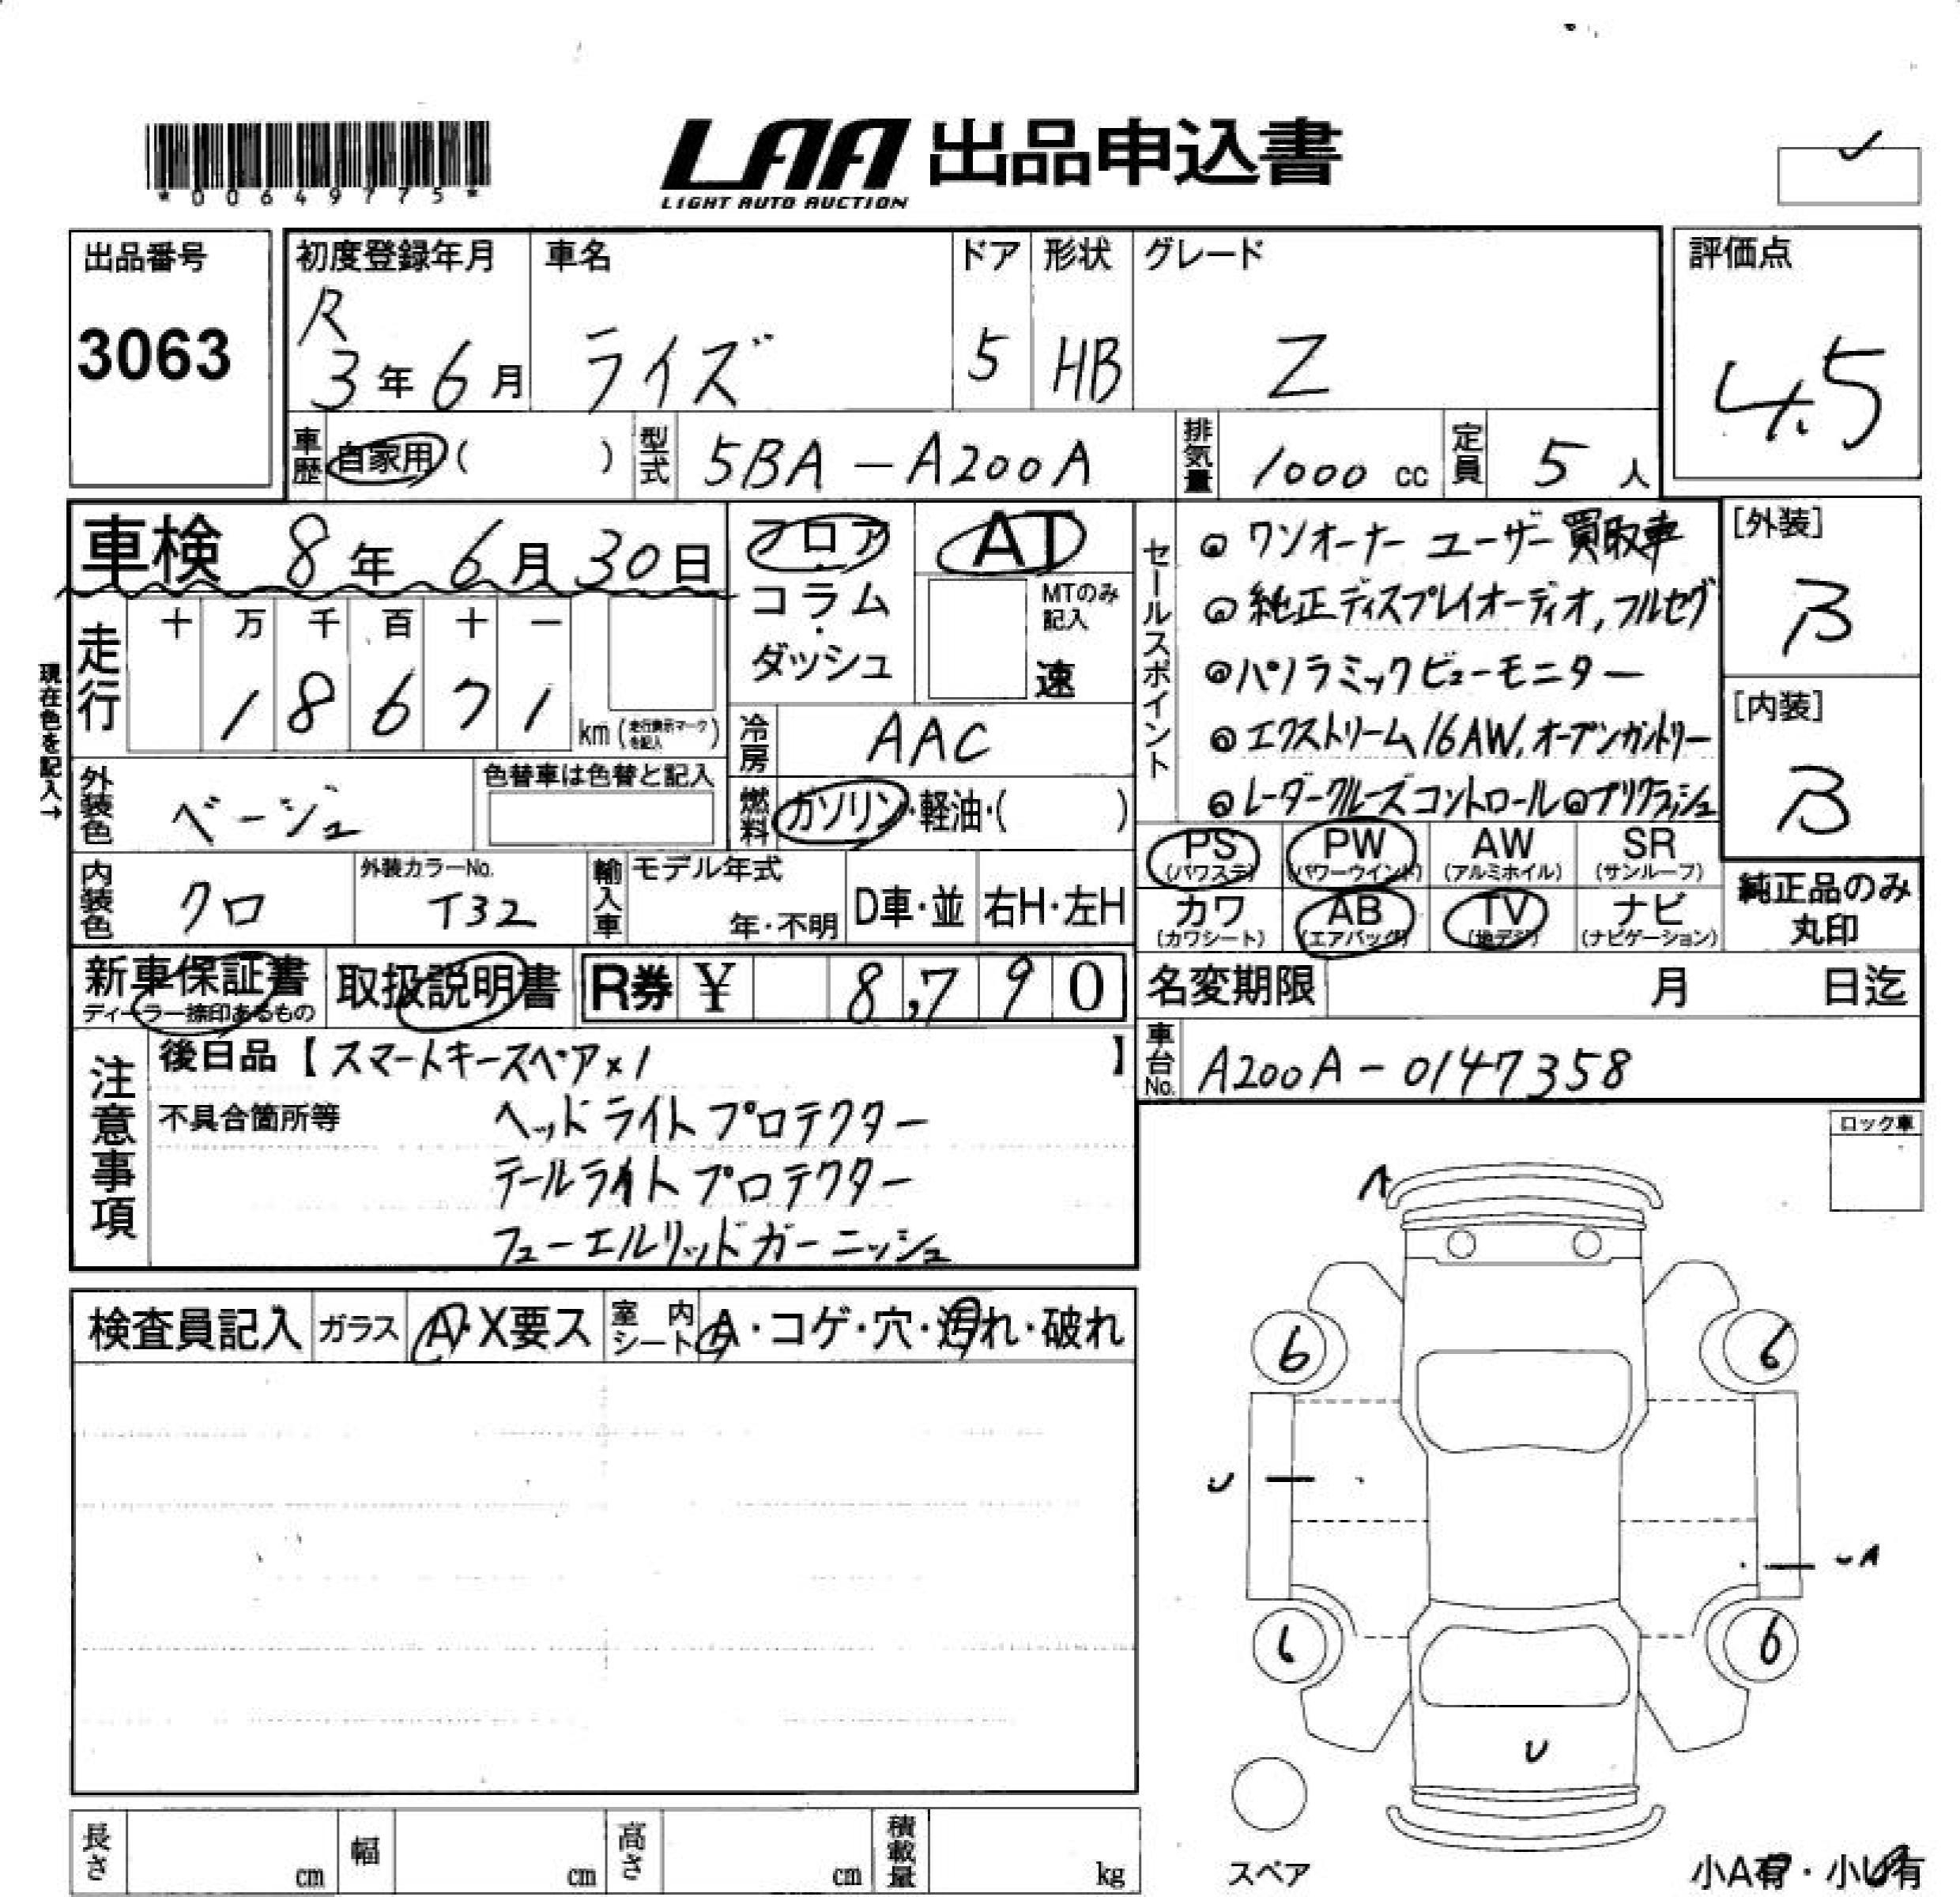 *00649775*
LAA 出品申込書
LIGHT AUTO AUCTION
出品番号
3063
初度登録年月
3年6月
車名
ライズ
ドア
5
形状
HB
グレード
Z
評価点
4.5
車歴
自家用( )
型式
5BA-A200A
排気量
1000 cc
定員
5人
車検 8年6月30日
フロア・コラム・ダッシュ
AT
MTのみ記入
速
セールスポイント
◎ワンオーナー ユーザー買取車
◎純正ディスプレイオーディオ,フルセグ
◎パノラミックビューモニター
◎エクストリーム16AW,オープンカントリー
◎レーダークルーズコントロール◎プリクラッシュ
[外装]
B
[内装]
B
現在色を記入→
走行
十 万 千 百 十 一
1 8 6 7 1
km (走行表示マークを記入)
冷房
AAC
外装色
ベージュ
色替車は色替と記入
燃料
ガソリン・軽油・( )
内装色
クロ
外装カラーNo.
T32
輸入車
モデル年式
年・不明
D車・並
右H・左H
PS
(パワステ)
PW
(パワーウインド)
AW
(アルミホイル)
SR
(サンルーフ)
カワ
(カワシート)
AB
(エアバッグ)
TV
(地デジ)
ナビ
(ナビゲーション)
純正品のみ
丸印
新車保証書
ディーラー捺印あるもの
取扱説明書
R券 ¥ 8,790
名変期限 月 日迄
車台No.
A200A-0147358
注意事項
後日品【スマートキースペア×1 】
不具合箇所等
ヘッドライトプロテクター
テールライトプロテクター
フューエルリッドガーニッシュ
ロック車
A
検査員記入
ガラス
A・X要ス
室内シート
A・コゲ・穴・汚れ・破れ
6
6
U
UA
6
6
U
スペア
小A有・小U有
長さ cm
幅 cm
高さ cm
積載量 kg